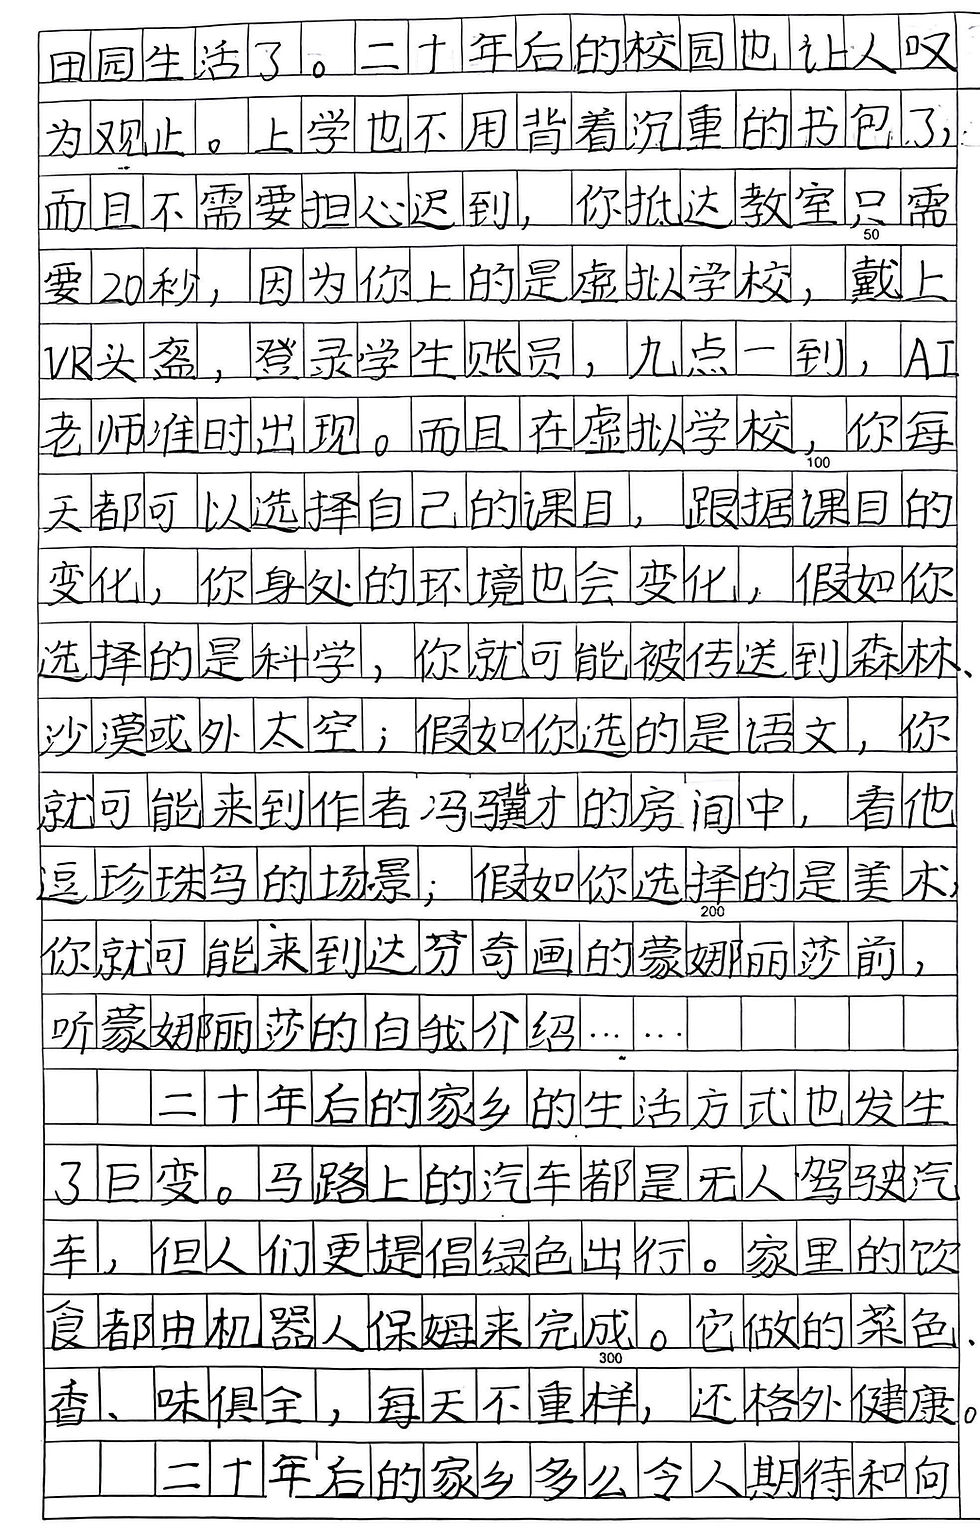 田园生活了。二十年后的校园也让人叹
为观止。上学也不用背着沉重的书包了，
而且不需要担心迟到，你抵达教室只需
50
要20秒，因为你上的是虚拟学校，戴上
VR头盔，登录学生账员，九点一到，AI
老师准时出现。而且在虚拟学校，你每
100
天都可以选择自己的课目，跟据课目的
变化，你身处的环境也会变化，假如你
选择的是科学，你就可能被传送到森林、
沙漠或外太空；假如你选的是语文，你
就可能来到作者冯骥才的房间中，看他
逗珍珠鸟的场景；假如你选择的是美术，
200
你就可能来到达芬奇画的蒙娜丽莎前，
听蒙娜丽莎的自我介绍……
二十年后的家乡的生活方式也发生
了巨变。马路上的汽车都是无人驾驶汽
车，但人们更提倡绿色出行。家里的饮
食都由机器人保姆来完成。它做的菜色、
300
香、味俱全，每天不重样，还格外健康。
二十年后的家乡多么令人期待和向